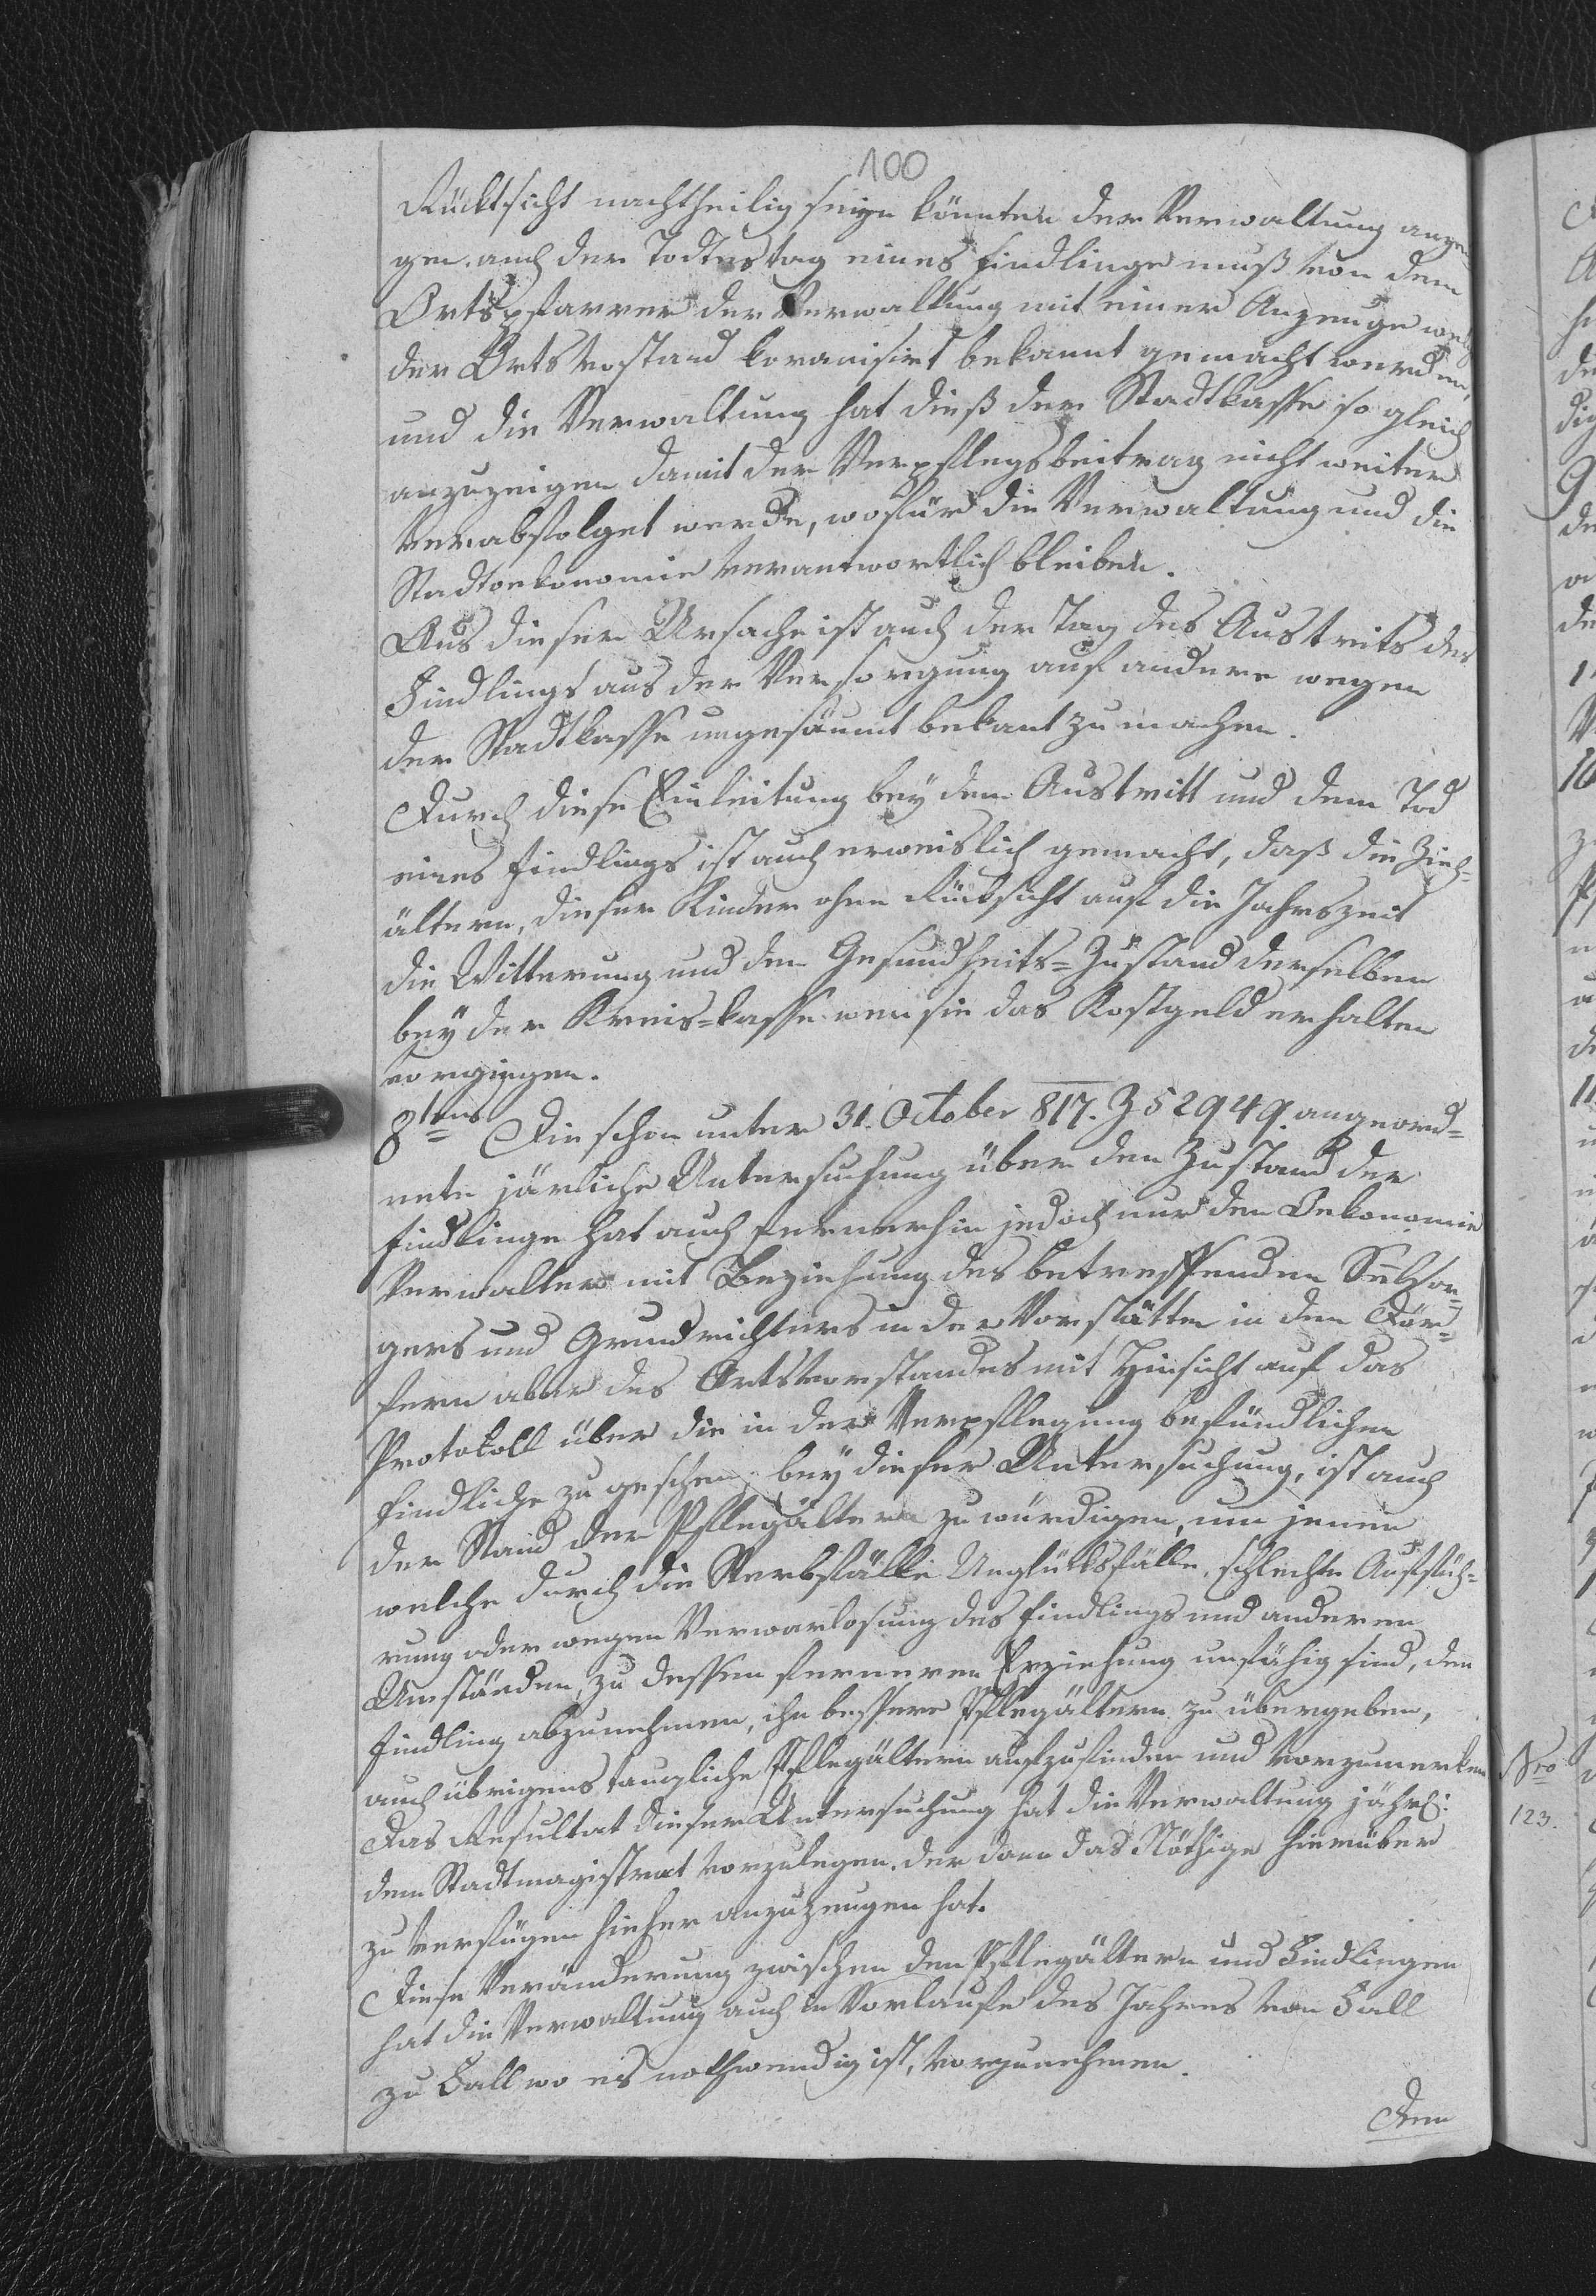 100
Rücktsicht nachtheilig seyn könnten der Verwaltung anze
gen. auch der Todtestag eines Findlings muß von dem
Ortspfarrer der Verwaltung mit einer Anzeuge welch
der Ortsvostand koramisirt bekannt gemacht werden,
und die Verwaltung hat dieß der Stadtkasse so gleich
anzuzeigen damit der Verpflegsbeitrag nicht weiter
verabfolget werde, wofür die Verwaltung und die
Stadtoekonomie verantwortlich bleiben.
Aus dieser Ursache ist auch der Tag des Austrits des
Findlings aus der Versorgung auf andere wegen
der Stadtkasse ungesäumt bekant zu machen.
Durch diese Einleitung bey dem Austritt und dem Tod
eines Findlings ist auch erweislich gemacht, daß die Zieh=
ältern, dieser Kinder ohne Rücksicht auf die Jahrszeit
die Witterung und den Gesundheits=Zustand derselben
bey der Kreis=kasse wen sie das Kostgeld erhalten
vorgingen.
8tens Die schon unter 31. October 817. Z 52949. angeord=
nete järliche Untersuchung über den Zustand der
Findlinge hat auch fernerhin jedoch nur den Oekonomie
Verwalter mit Beziehung des betreffenden Seelsor=
gers und Grundrichters in der Vorstätten in den Dör=
fern aber des Ortsvorstandes mit Hinsicht auf das
Protokoll über die in der Verpflegung befündlichen
Findliche zu geschen, bey dieser Untersuchung, ist auch
der Stand der Pflegältern zu würdigen, um jenen
welche durch die Sterbfälle Unglüksfälle, schlechte Auffüh=
rung oder wegen Verwarlosung des Findlings und anderen
Umständen, zu dessen ferneren Erziehung unfähig sind, den
Findling abzunehmen, ihn bessere Pflegältern zu übergeben,
auch übrigens taugliche Pflegältern aufzufinden und vorzumerken
Das Resultat dieser Untersuchung hat die Verwaltung jährl:
dem Stadtmagistrat vorzulegen. der dann das Nöthige hierüber
zu verfügen hieher anzuzeugen hat.
Diese Veränderung zwischen den Pflegältern und Findlingen
hat die Verwaltung auch in Vorlaufe des Jahres von Fall
zu Fall wo es nothwendig ist, vorzunehmen.
Dem
Nro
123.